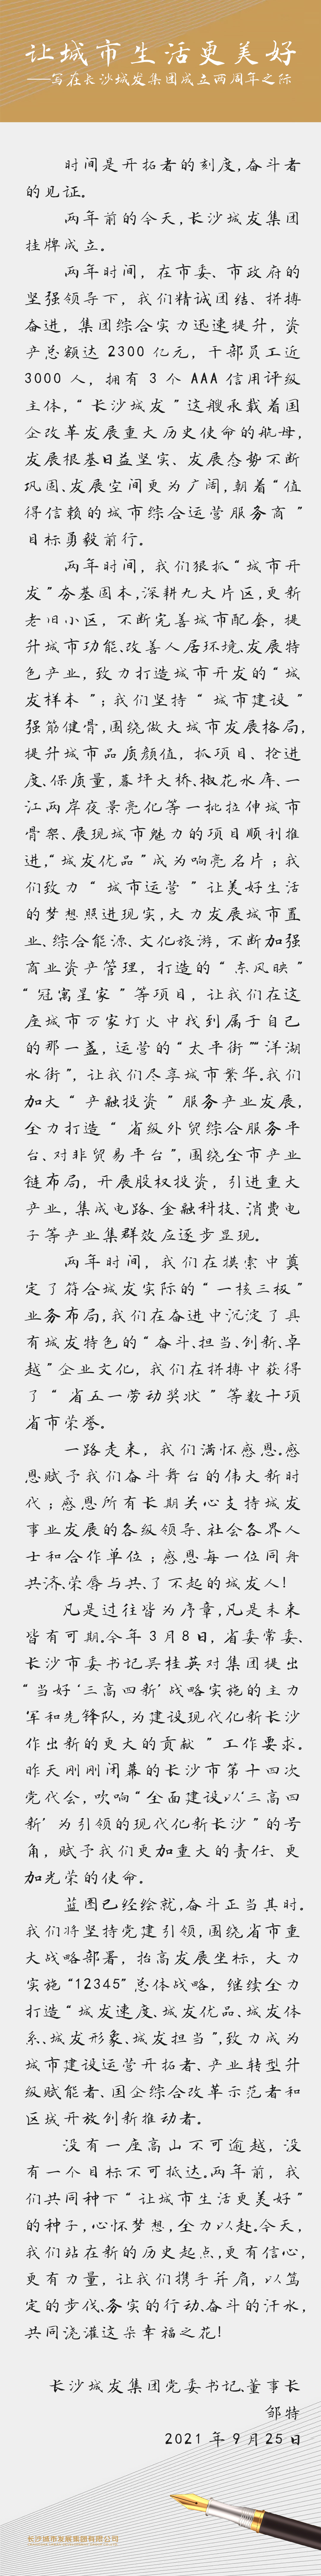 让城市生活更美好
——写在长沙城发集团成立两周年之际
时间是开拓者的刻度,奋斗者
的见证。
两年前的今天,长沙城发集团
挂牌成立。
两年时间，在市委、市政府的
坚强领导下，我们精诚团结、拼搏
奋进，集团综合实力迅速提升，资
产总额达 2300 亿元，干部员工近
3000 人，拥有 3 个 AAA 信用评级
主体，“长沙城发”这艘承载着国
企改革发展重大历史使命的航母，
发展根基日益坚实、发展态势不断
巩固、发展空间更为广阔，朝着“值
得信赖的城市综合运营服务商”
目标勇毅前行。
两年时间，我们狠抓“城市开
发”夯基固本，深耕九大片区，更新
老旧小区，不断完善城市配套，提
升城市功能、改善人居环境、发展特
色产业，致力打造城市开发的“城
发样本”；我们坚持“城市建设”
强筋健骨，围绕做大城市发展格局，
提升城市品质颜值，抓项目、抢进
度、保质量，暮坪大桥、椒花水库、一
江两岸夜景亮化等一批拉伸城市
骨架、展现城市魅力的项目顺利推
进，“城发优品”成为响亮名片；我
们致力“城市运营”让美好生活
的梦想照进现实，大力发展城市置
业、综合能源、文化旅游，不断加强
商业资产管理，打造的“东风映”
“冠寓星家”等项目，让我们在这
座城市万家灯火中找到属于自己
的那一盏，运营的“太平街”“洋湖
水街”，让我们尽享城市繁华。我们
加大“产融投资”服务产业发展，
全力打造“省级外贸综合服务平
台、对非贸易平台”，围绕全市产业
链布局，开展股权投资，引进重大
产业，集成电路、金融科技、消费电
子等产业集群效应逐步显现。
两年时间，我们在摸索中奠
定了符合城发实际的“一核三极”
业务布局，我们在奋进中沉淀了具
有城发特色的“奋斗、担当、创新、卓
越”企业文化，我们在拼搏中获得
了“省五一劳动奖状”等数十项
省市荣誉。
一路走来，我们满怀感恩。感
恩赋予我们奋斗舞台的伟大新时
代；感恩所有长期关心支持城发
事业发展的各级领导、社会各界人
士和合作单位；感恩每一位同舟
共济、荣辱与共、了不起的城发人！
凡是过往皆为序章，凡是未来
皆有可期。今年 3 月8 日，省委常委、
长沙市委书记吴桂英对集团提出
“当好‘三高四新’战略实施的主力
军和先锋队，为建设现代化新长沙
作出新的更大的贡献”工作要求。
昨天刚刚闭幕的长沙市第十四次
党代会，吹响“全面建设以‘三高四
新’为引领的现代化新长沙”的号
角，赋予我们更加重大的责任、更
加光荣的使命。
蓝图已经绘就，奋斗正当其时。
我们将坚持党建引领，围绕省市重
大战略部署，抬高发展坐标，大力
实施“12345”总体战略，继续全力
打造“城发速度、城发优品、城发体
系、城发形象、城发担当”，致力成为
城市建设运营开拓者、产业转型升
级赋能者、国企综合改革示范者和
区域开放创新推动者。
没有一座高山不可逾越，没
有一个目标不可抵达。两年前，我
们共同种下“让城市生活更美好”
的种子，心怀梦想，全力以赴。今天，
我们站在新的历史起点，更有信心，
更有力量，让我们携手并肩，以笃
定的步伐、务实的行动、奋斗的汗水，
共同浇灌这朵幸福之花！
长沙城发集团党委书记、董事长
邹特
2021 年 9 月 25 日
长沙城市发展集团有限公司